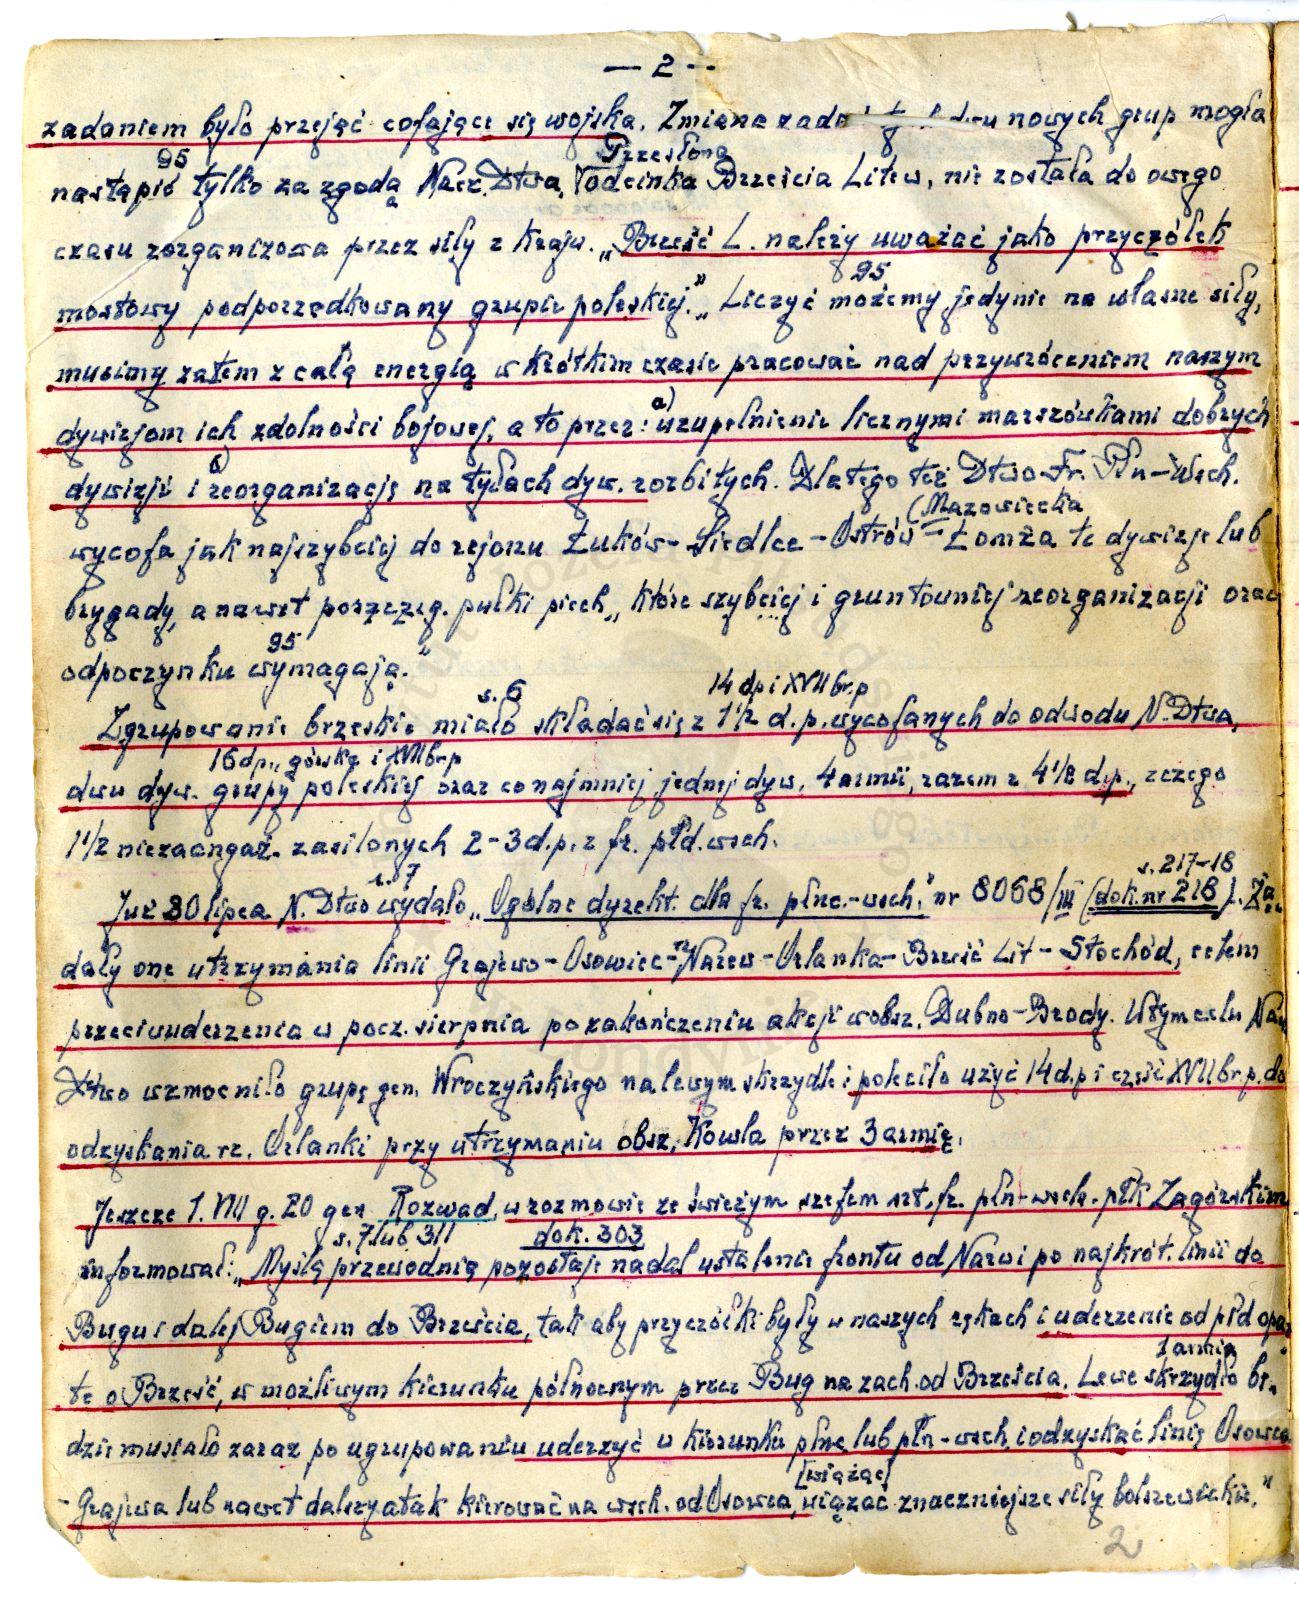 — 2 --
zadaniem było przejąć cofające się wojska. Zmiana nowych grup mogła
95 Przesłona
nastąpić tylko za zgodą Nacz. Dtwa, odcinka Brześcia Litew. nie została do owego
czasu zorganizowa przez siły z kraju. „Brześć L. należy uważać jako przyczółek
95
mostowy podporządkowany grupie poleskiej." „Liczyć możemy jedynie na własne siły,
musimy zatem z całą energią w krótkim czasie pracować nad przywróceniem naszym
a)
dywizjom ich zdolności bojowej, a to przez: uzupełnienie licznymi marszówkami dobrych
b)
dywizji i reorganizację na tyłach dyw. rozbitych. Dlatego też Dtwo Fr. Płn-Wsch.
(Mazowiecka
wycofa jak najszybciej do rejonu Łuków-Siedlce-Ostrów-Łomża te dywizje lub
brygady, a nawet poszczeg. pułki piech., które szybciej i gruntowniej reorganizacji oraz
95
odpoczynku wymagają."
s. 6 14 dp i XVII br.p
Zgrupowanie brzeskie miało składać się z 1 1/2 d.p. wycofanych do odwodu N. Dtwa,
16 dp., górską i XVII br.p
dwu dyw. grupy poleskiej oraz co najmniej jednej dyw. 4 armii, razem z 4 1/2 d.p., z czego
1 1/2 niezaangaż. zasilonych 2-3 d.p. z fr. płd. wsch.
s. 7 s. 217-18
Już 30 lipca N. Dtwo wydało „Ogólne dyrekt. dla fr. płnc.-wsch." nr 8068/III (dok. nr 218). Żą-
rz.
dały one utrzymania linii Grajewo-Osowiec-Narew-Orlanka-Brześć Lit-Stochód, celem
przeciwuderzenia w pocz. sierpnia po zakończeniu akcji w obsz. Dubno-Brody. W tym celu Nacz
Dtwo wzmocniło grupę gen. Wroczyńskiego na lewym skrzydle i poleciło użyć 14 d.p i część XVII br.p. do
odzyskania rz. Orlanki przy utrzymaniu obsz. Kowla przez 3 armię.
Jeszcze 1. VIII g. 20 gen Rozwad. w rozmowie ze świeżym szefem szt. fr. płn-wsch. płk Zagórskim
s. 7 lub 311 dok. 303
informował: „Myślą przewodnią pozostaje nadal ustalenie frontu od Narwi po najkrót. linii do
Bugu i dalej Bugiem do Brześcia, tak aby przyczółki były w naszych rękach i uderzenie od płd opar
1 armia
te o Brześć, w możliwym kierunku północnym przez Bug na zach. od Brześcia. Lewe skrzydło bę-
dzie musiało zaraz po ugrupowaniu uderzyć w kierunku płnc lub płn-wsch. i odzyskać linię Osowca
[wiążąc]
- Grajewa lub nawet dalszy atak kierować na wsch. od Osowca, wiązać znaczniejsze siły bolszewickie."
2